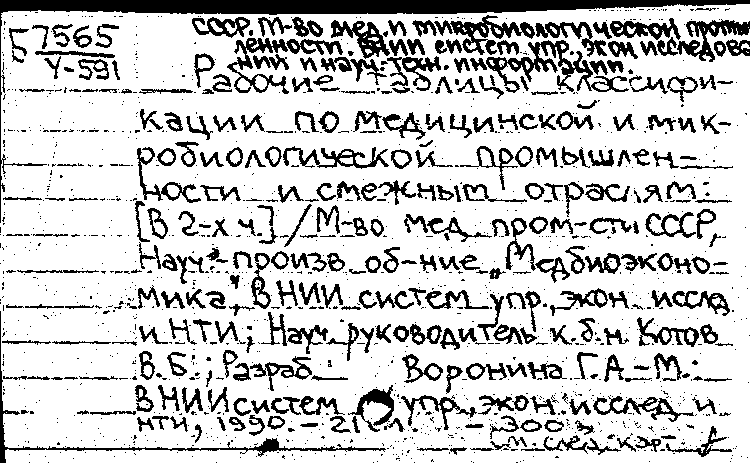 Б 7565
У-591
СССР. М-во мед. и микробиологической промыш
ленности. ВНИИ систем упр., экон исследова
ний и науч.-техн. информации.
Рабочие таблицы классифи-
кации по медицинской и мик-
робиологической промышлен-
ности и смежным отраслям:
[В 2-х ч.] / М-во мед пром-сти СССР,
Науч.-произв об-ние „Медбиоэконо-
мика", ВНИИ систем упр., экон. исслед
и НТИ; Науч. руководитель к.б.н. Котов
В.Б.; Разраб. Воронина Г.А. - М.:
ВНИИ систем упр., экон. исслед и
НТИ, 1990. - 21 см. - 300
см. след. карт